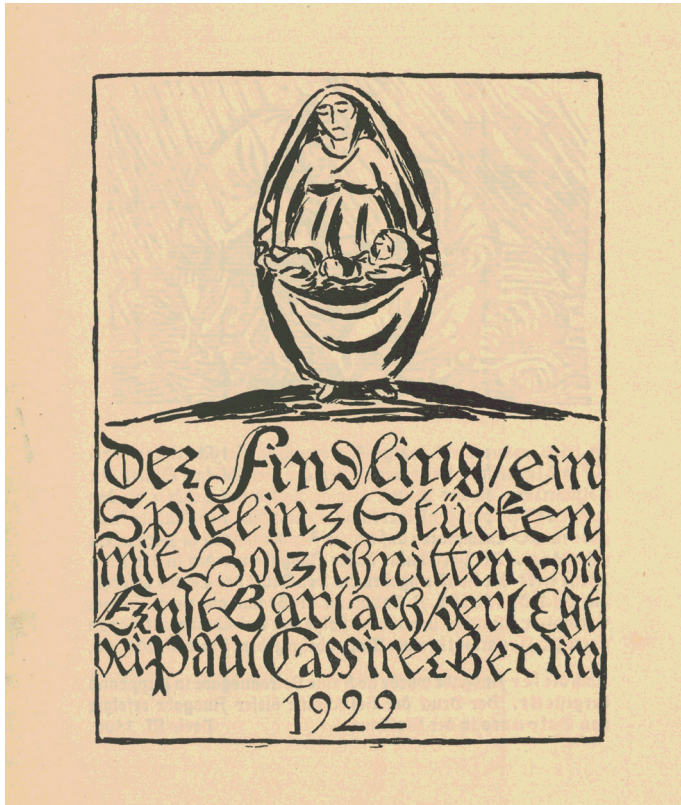 Der Findling/ein
Spiel in 3 Stücken
mit Holzschnitten von
Ernst Barlach/verlegt
bei Paul Cassirer Berlin
1922